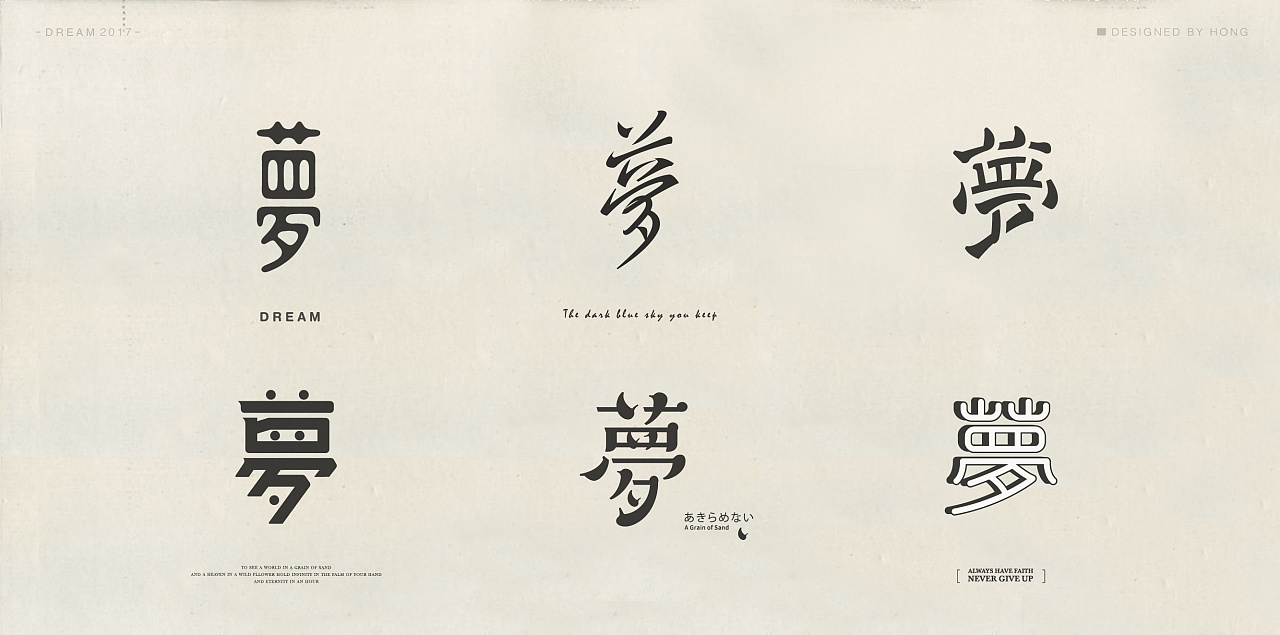 -DREAM 2017-
DESIGNED BY HONG
夢
夢
夢
DREAM
The dark blue sky you keep
夢
夢
夢
あきらめない
A Grain of Sand
TO SEE A WORLD IN A GRAIN OF SAND
AND A HEAVEN IN A WILD FLLOWER HOLD INFINITY IN THE PALM OF YOUR HAND
AND ETERNITY IN AN HOUR
[ ALWAYS HAVE FAITH
NEVER GIVE UP ]